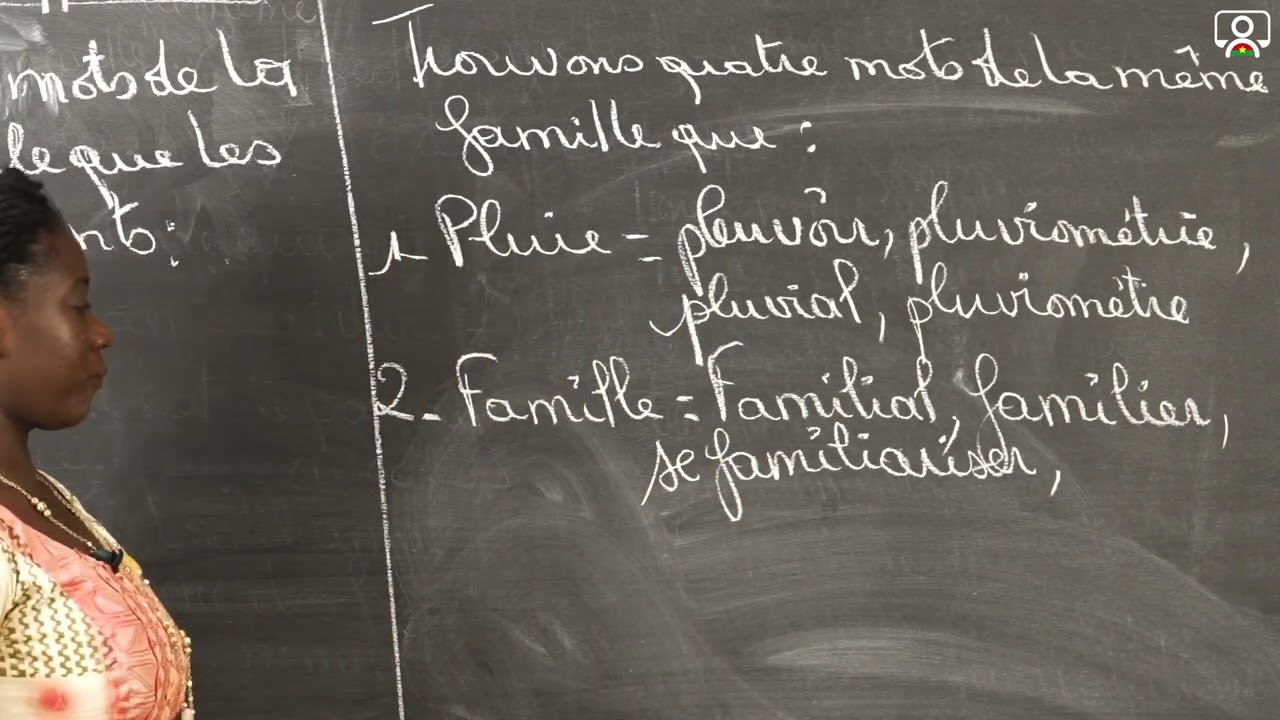 mots de la
le que les
nts:
Trouvons quatre mots de la même
famille que :
1. Pluie = pleuvoir, pluviométrie,
pluvial, pluviomètre
2. Famille = Familial, familier,
se familiariser,